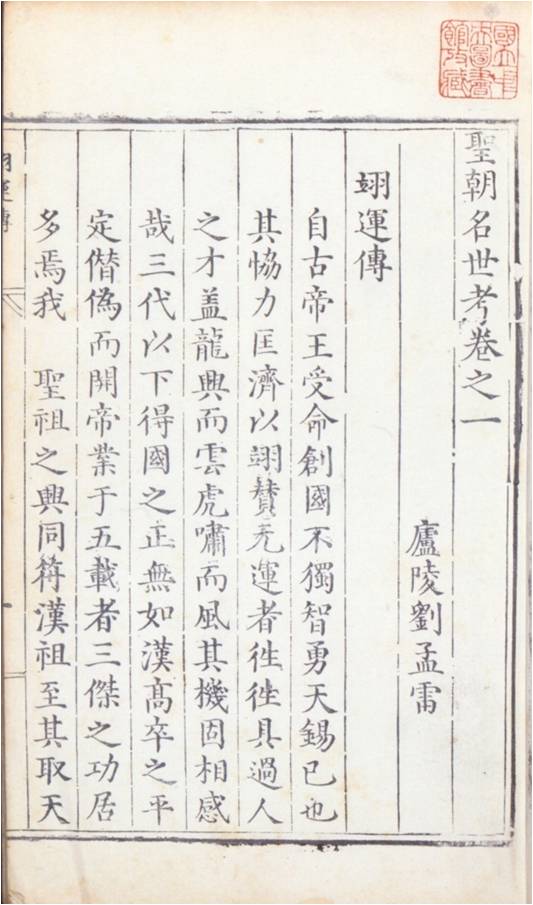 聖朝名世考卷之一
廬陵劉孟雷
翊運傳
自古帝王受命創國不獨智勇天錫已也
其恊力匡濟以翊賛元運者徃徃具過人
之才盖龍興而雲虎嘯而風其機固相感
哉三代以下得國之正無如漢高卒之平
定僣偽而開帝業于五載者三傑之功居
多焉我　聖祖之興同符漢祖至其取天
翊運傳
國立中
央圖書
館收藏